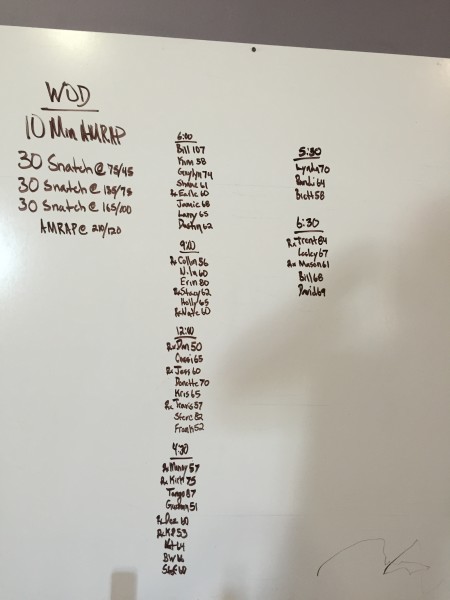 WOD
10 Min AMRAP
30 Snatch @ 75/45
30 Snatch @ 135/75
30 Snatch @ 165/100
AMRAP @ 210/120
6:00
Bill 107
Kim 58
Gaylyn 74
Shane 61
Rx Earle 60
Jamie 68
Larry 65
Dustin 62
9:00
Rx Collin 56
60
Erin 80
Rx Stacy 62
Holly 65
Rx Nate 60
12:00
Rx Dan 50
Cassi 65
Rx Jess 60
Danette 70
Kris 65
Rx Travis 57
Steve 82
Frank 52
4:30
Rx Manny 57
Rx Kirk 75
Tango 87
Graham 51
Rx Dee 60
Rx KP 53
Nat 64
BW 66
5:30
Lynda 70
Randi 64
Brett 58
6:30
Rx Trent 84
Lecky 67
Rx Mason 61
Bill 68
David 69